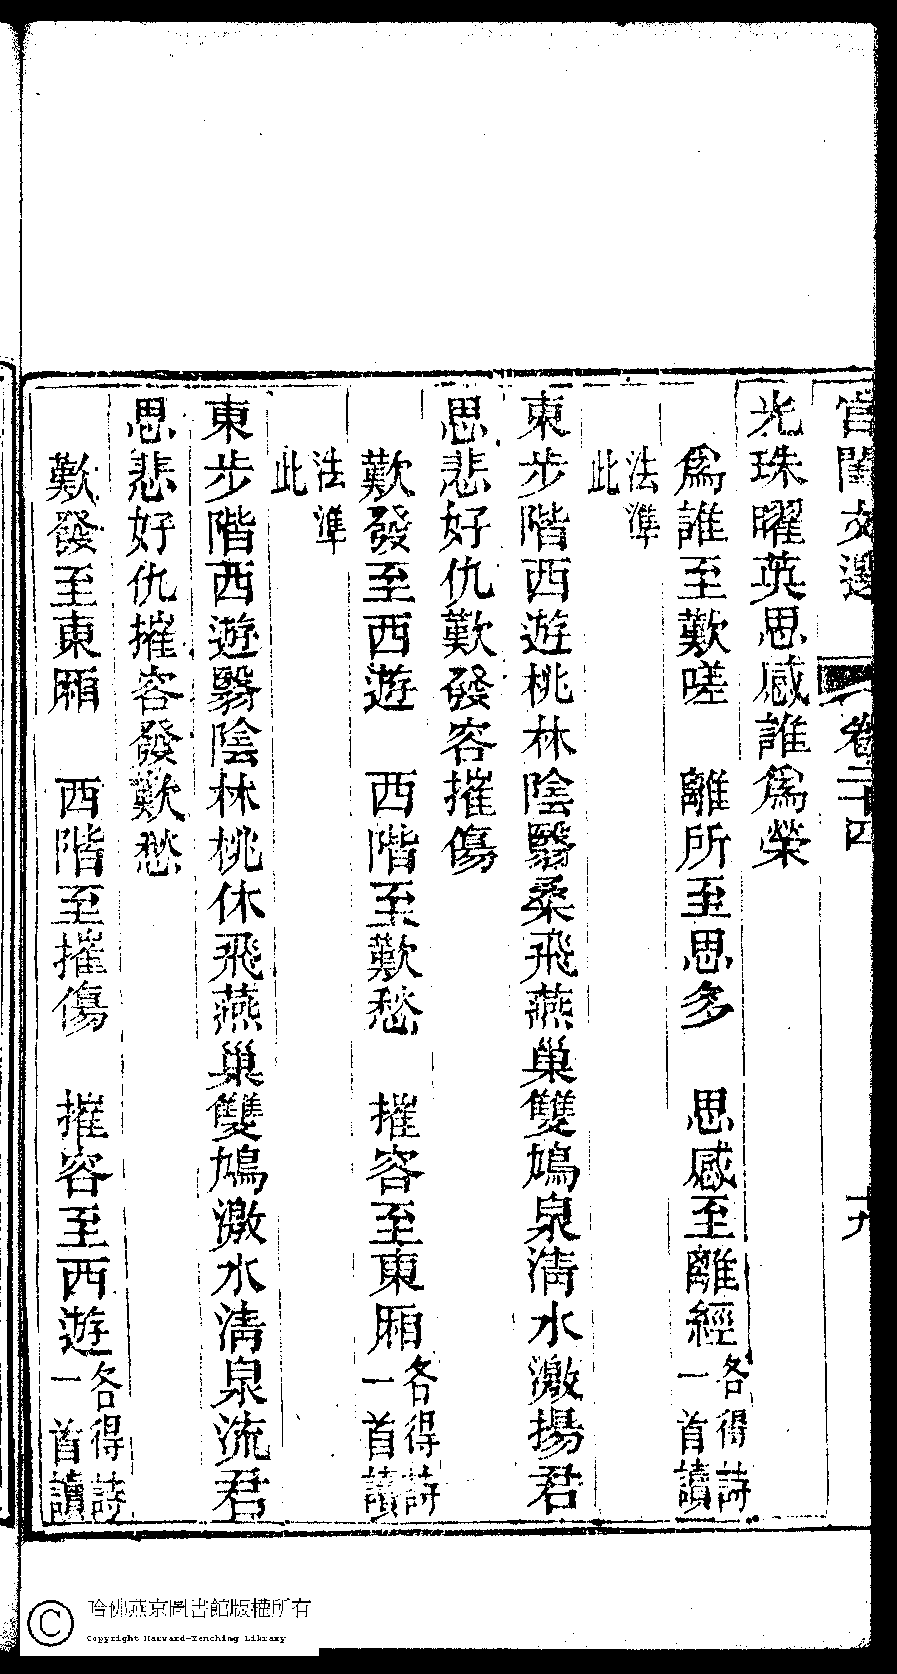 宮閨文選 卷二十四 十九
光珠曜英思感誰爲榮
爲誰至歎嗟 離所至思多 思感至離經各得詩一首讀
法準此
東步階西遊桃林陰翳桑飛燕巢雙鳩泉清水激揚君
思悲好仇歎發容摧傷
歎發至西遊 西階至歎愁 摧容至東厢各得詩一首讀
法準此
東步階西遊翳陰林桃休飛燕巢雙鳩激水清泉流君
思悲好仇摧容發歎愁
歎發至東厢 西階至摧傷 摧容至西遊各得詩一首讀
哈佛燕京圖書館版權所有
Copyright Harvard-Yenching Library